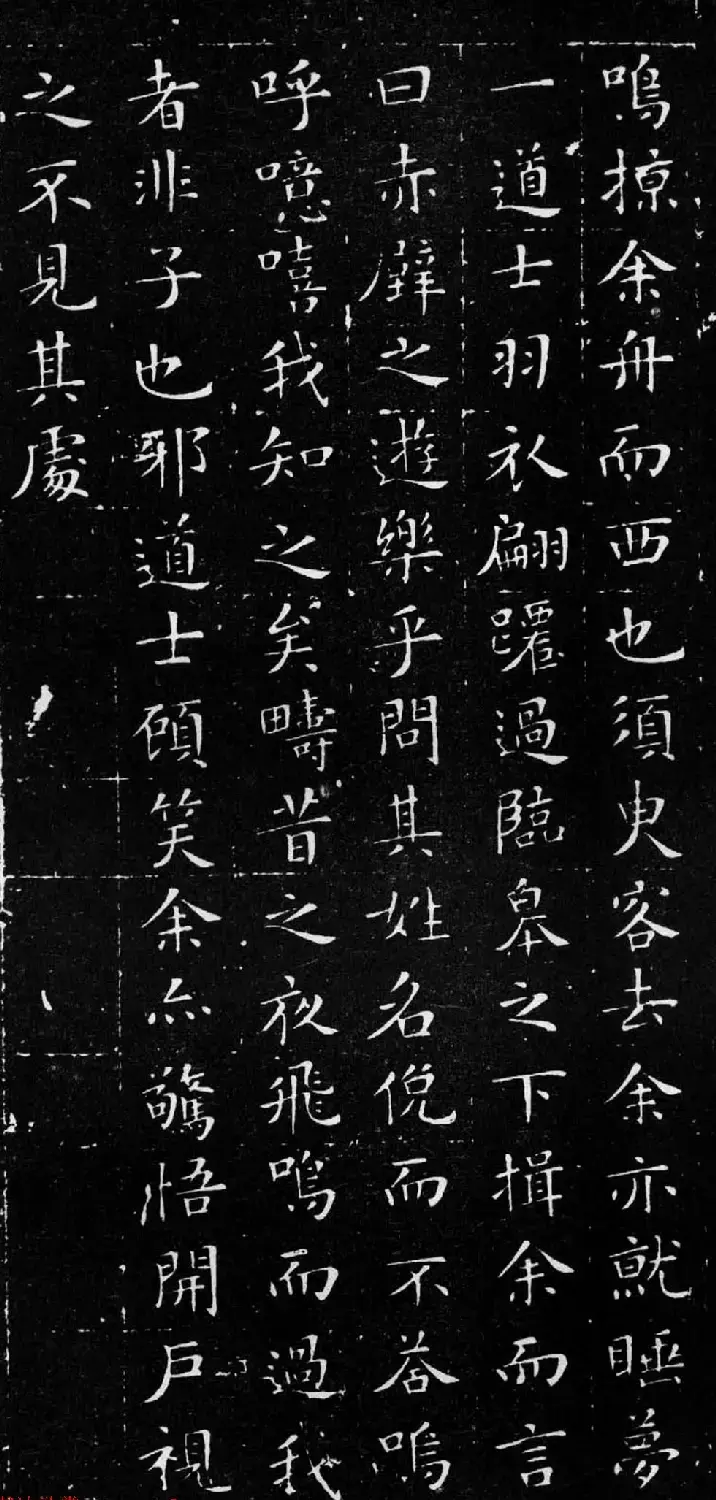 鳴掠余舟而西也須臾客去余亦就睡夢
一道士羽衣翩躚過臨皋之下揖余而言
曰赤壁之遊樂乎問其姓名俛而不荅嗚
呼噫嘻我知之矣疇昔之夜飛鳴而過我
者非子也邪道士顧笑余亦驚悟開戶視
之不見其處